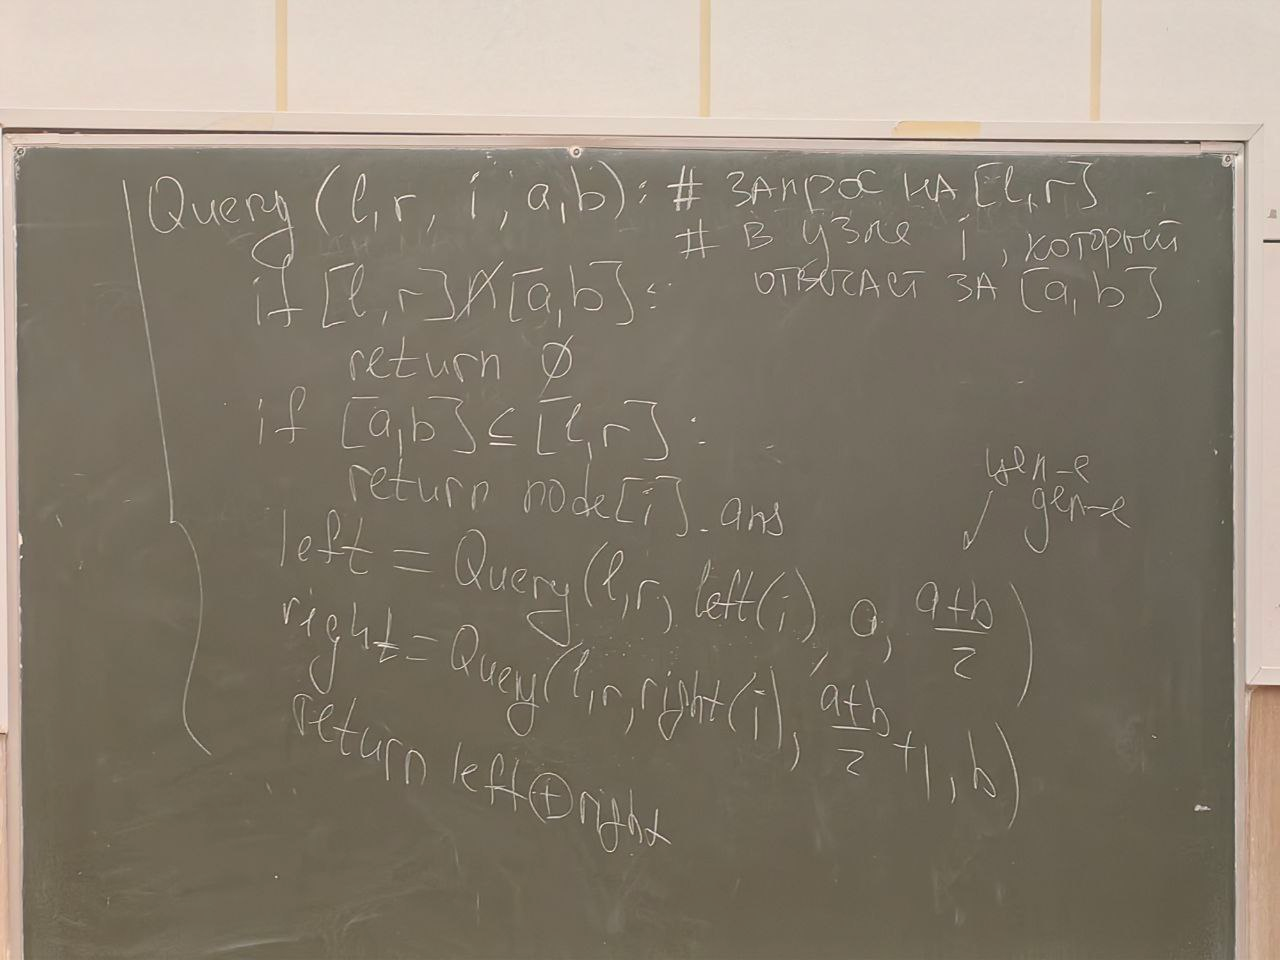 Query (l, r, i, a, b): # запрос на [l, r]
# в узле i, который
отвечает за [a, b]
if [l, r] ∩̸ [a, b]:
return ∅
if [a, b] ⊆ [l, r]:
return node[i].ans
цел-е
дел-е
left = Query(l, r, left(i), a, (a+b)/2)
right = Query(l, r, right(i), (a+b)/2 + 1, b)
return left ⊕ right